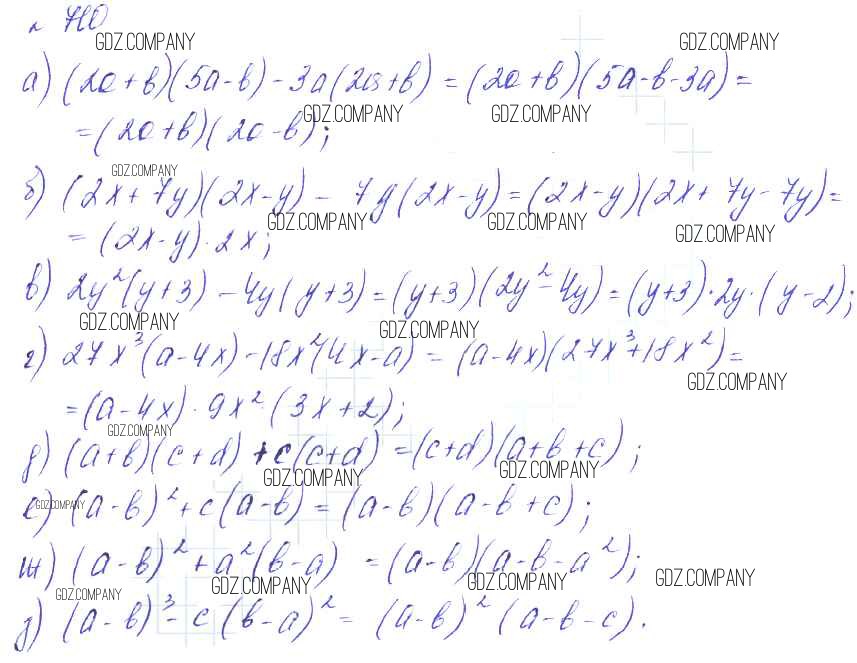 № 710
GDZ.COMPANY GDZ.COMPANY
а) (2a+b)(5a-b) - 3a(2a+b) = (2a+b)(5a-b-3a) =
GDZ.COMPANY GDZ.COMPANY
= (2a+b)(2a-b);
GDZ.COMPANY
б) (2x+7y)(2x-y) - 7y(2x-y) = (2x-y)(2x+7y-7y) =
GDZ.COMPANY GDZ.COMPANY GDZ.COMPANY
= (2x-y)·2x;
в) 2y²(y+3) - 4y(y+3) = (y+3)(2y²-4y) = (y+3)·2y·(y-2);
GDZ.COMPANY GDZ.COMPANY
г) 27x³(a-4x) - 18x²(4x-a) = (a-4x)(27x³+18x²) =
GDZ.COMPANY
= (a-4x)·9x²·(3x+2);
GDZ.COMPANY
д) (a+b)(c+d) + c(c+d) = (c+d)(a+b+c);
GDZ.COMPANY GDZ.COMPANY
е) (a-b)² + c(a-b) = (a-b)(a-b+c);
GDZ.COMPANY
ж) (a-b)² + a²(b-a) = (a-b)(a-b-a²);
GDZ.COMPANY GDZ.COMPANY GDZ.COMPANY GDZ.COMPANY
з) (a-b)³ - c(b-a)² = (a-b)²(a-b-c).